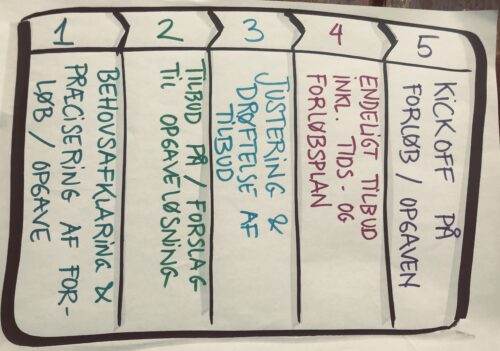 1
BEHOVSAFKLARING &
PRÆCISERING AF FOR-
LØB / OPGAVE
2
TILBUD PÅ / FORSLAG
TIL OPGAVELØSNING
3
JUSTERING &
DRØFTELSE AF
TILBUD
4
ENDELIGT TILBUD
INKL. TIDS- OG
FORLØBSPLAN
5
KICKOFF PÅ
FORLØB / OPGAVEN